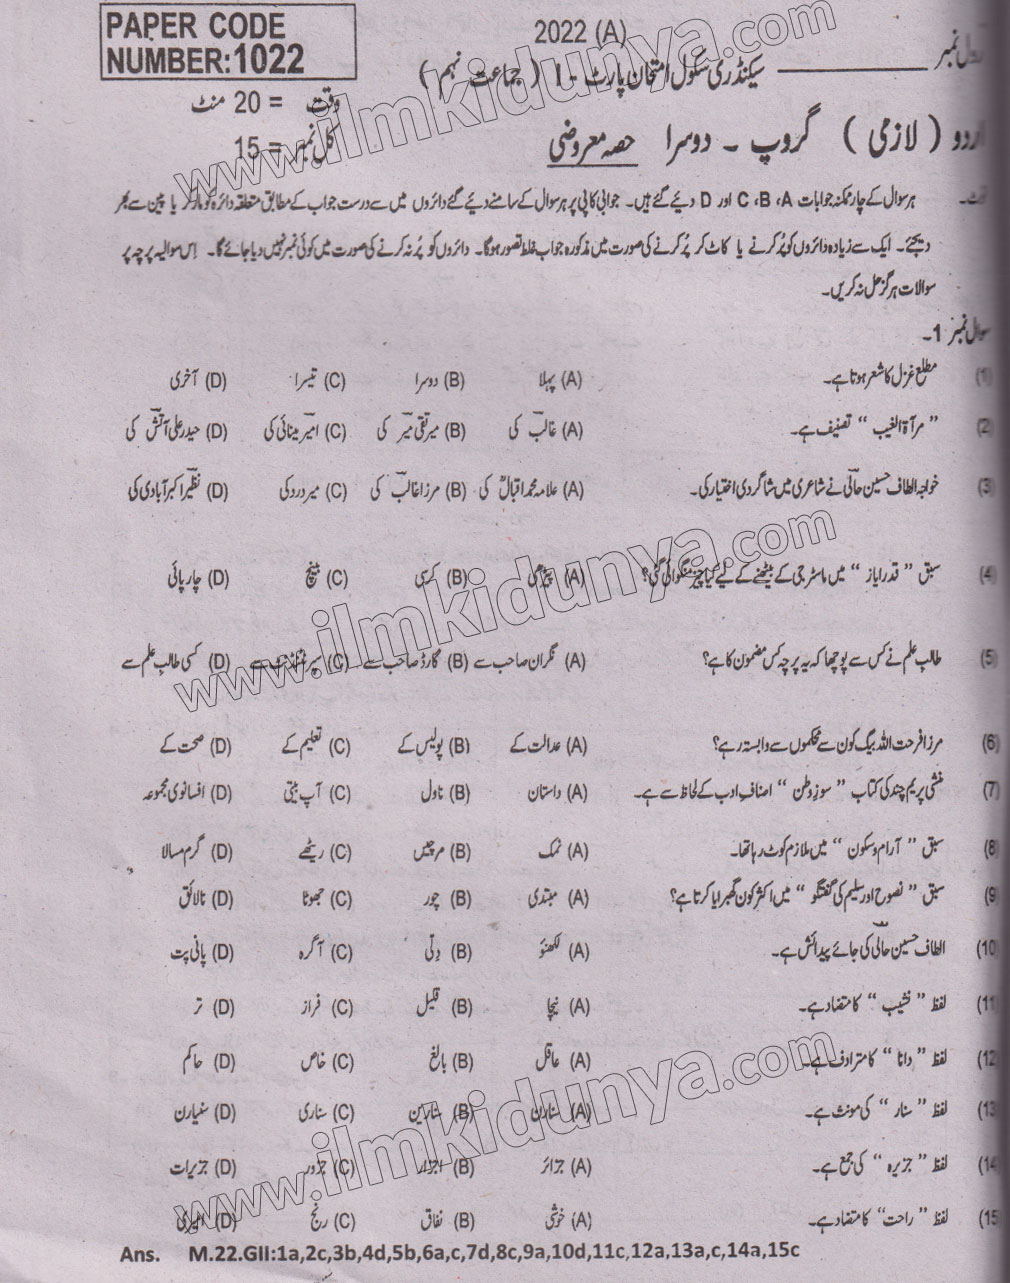 PAPER CODE
NUMBER:1022
2022 (A)
رول نمبر
سیکنڈری سکول امتحان پارٹ - I ( جماعت نہم )
وقت = 20 منٹ
اردو ( لازمی ) گروپ ۔ دوسرا حصہ معروضی
کل نمبر = 15
نوٹ۔ ہر سوال کے چار ممکنہ جوابات A، B، C اور D دیئے گئے ہیں۔ جوابی کاپی پر ہر سوال کے سامنے دیئے گئے دائروں میں سے درست جواب کے مطابق متعلقہ دائرہ کو مارکر یا پین سے بھر
دیجئے۔ ایک سے زیادہ دائروں کو پُر کرنے یا کاٹ کر پُر کرنے کی صورت میں مذکورہ جواب غلط تصور ہوگا۔ دائروں کو پُر نہ کرنے کی صورت میں کوئی نمبر نہیں دیا جائے گا۔ اِس سوالیہ پرچہ پر
سوالات ہرگز حل نہ کریں۔
سوال نمبر 1۔
(1) مطلع غزل کا شعر ہوتا ہے۔ (A) پہلا (B) دوسرا (C) تیسرا (D) آخری
(2) ” مرآۃ الغیب “ تصنیف ہے۔ (A) غالبؔ کی (B) میر تقی میرؔ کی (C) امیرؔ مینائی کی (D) حیدر علی آتشؔ کی
(3) خواجہ الطاف حسین حالیؔ نے شاعری میں شاگردی اختیار کی۔ (A) علامہ محمد اقبالؒ کی (B) مرزا غالبؔ کی (C) میر درد کی (D) نظیرؔ اکبر آبادی کی
(4) سبق ” قدر ایاز “ میں ماسٹر جی کے بیٹھنے کے لیے کیا چیز منگوائی گئی؟ (A) پیڑھی (B) کرسی (C) بینچ (D) چارپائی
(5) طالبِ علم نے کس سے پوچھا کہ یہ پرچہ کس مضمون کا ہے؟ (A) نگران صاحب سے (B) گارڈ صاحب سے (C) سپرنٹنڈنٹ سے (D) کسی طالبِ علم سے
(6) مرزا فرحت اللہ بیگ کون سے محکموں سے وابستہ رہے؟ (A) عدالت کے (B) پولیس کے (C) تعلیم کے (D) صحت کے
(7) منشی پریم چند کی کتاب ” سوزِ وطن “ اصنافِ ادب کے لحاظ سے ہے۔ (A) داستان (B) ناول (C) آپ بیتی (D) افسانوی مجموعہ
(8) سبق ” آرام و سکون “ میں ملازم کوٹ رہا تھا۔ (A) نمک (B) مرچیں (C) ریٹھے (D) گرم مسالا
(9) سبق ” نصوح اور سلیم کی گفتگو “ میں اکثر کون گھبرایا کرتا ہے؟ (A) مبتدی (B) چور (C) جھوٹا (D) نالائق
(10) الطاف حسین حالیؔ کی جائے پیدائش ہے۔ (A) لکھنؤ (B) دلّی (C) آگرہ (D) پانی پت
(11) لفظ ” نشیب “ کا متضاد ہے۔ (A) نیچا (B) قلیل (C) فراز (D) تر
(12) لفظ ” دانا “ کا مترادف ہے۔ (A) عاقل (B) بالغ (C) خاص (D) حاکم
(13) لفظ ” سنار “ کی مونث ہے۔ (A) سنارن (B) سنارین (C) سناری (D) سنیارن
(14) لفظ ” جزیرہ “ کی جمع ہے۔ (A) جزائر (B) اجزار (C) جزور (D) جزیرات
(15) لفظ ” راحت“ کا متضاد ہے۔ (A) خوشی (B) نفاق (C) رنج (D)
Ans. M.22.GII:1a,2c,3b,4d,5b,6a,c,7d,8c,9a,10d,11c,12a,13a,c,14a,15c
www.ilmkidunya.com
www.ilmkidunya.com
www.ilmkidunya.com